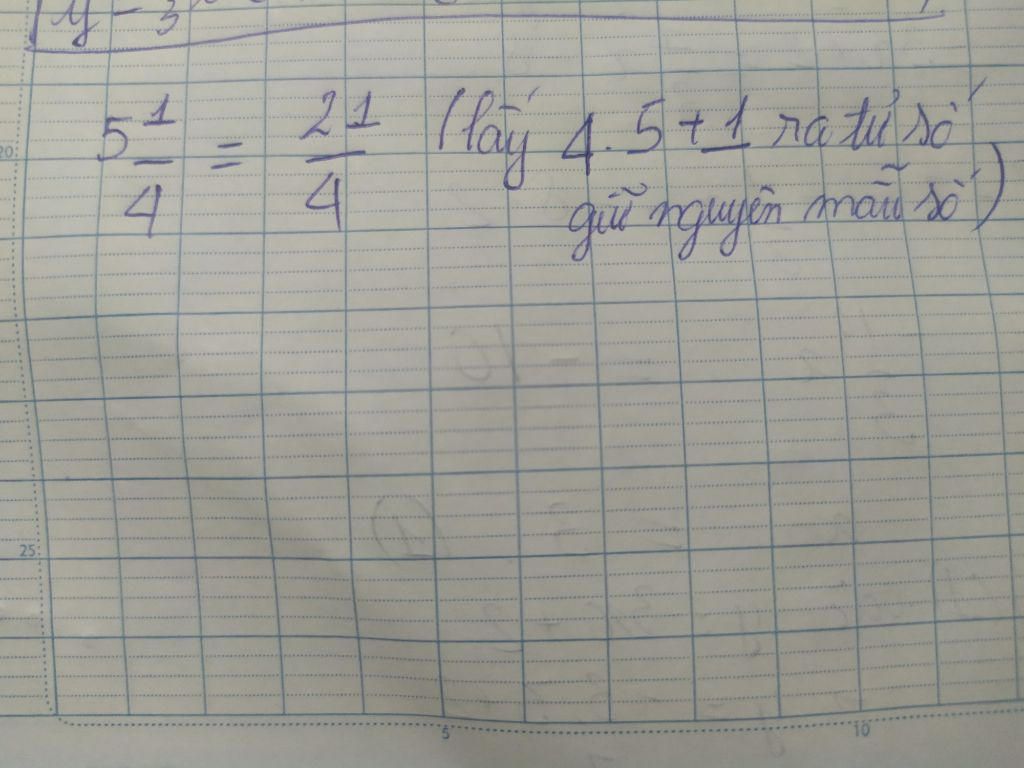 y = 3
5 1/4 = 21/4 (lấy 4.5+1 ra tử số
giữ nguyên mẫu số)
20
25
5
10